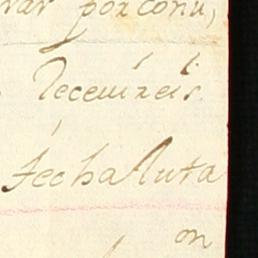 rar por conu,
Receuireis.
fecha Auta
on